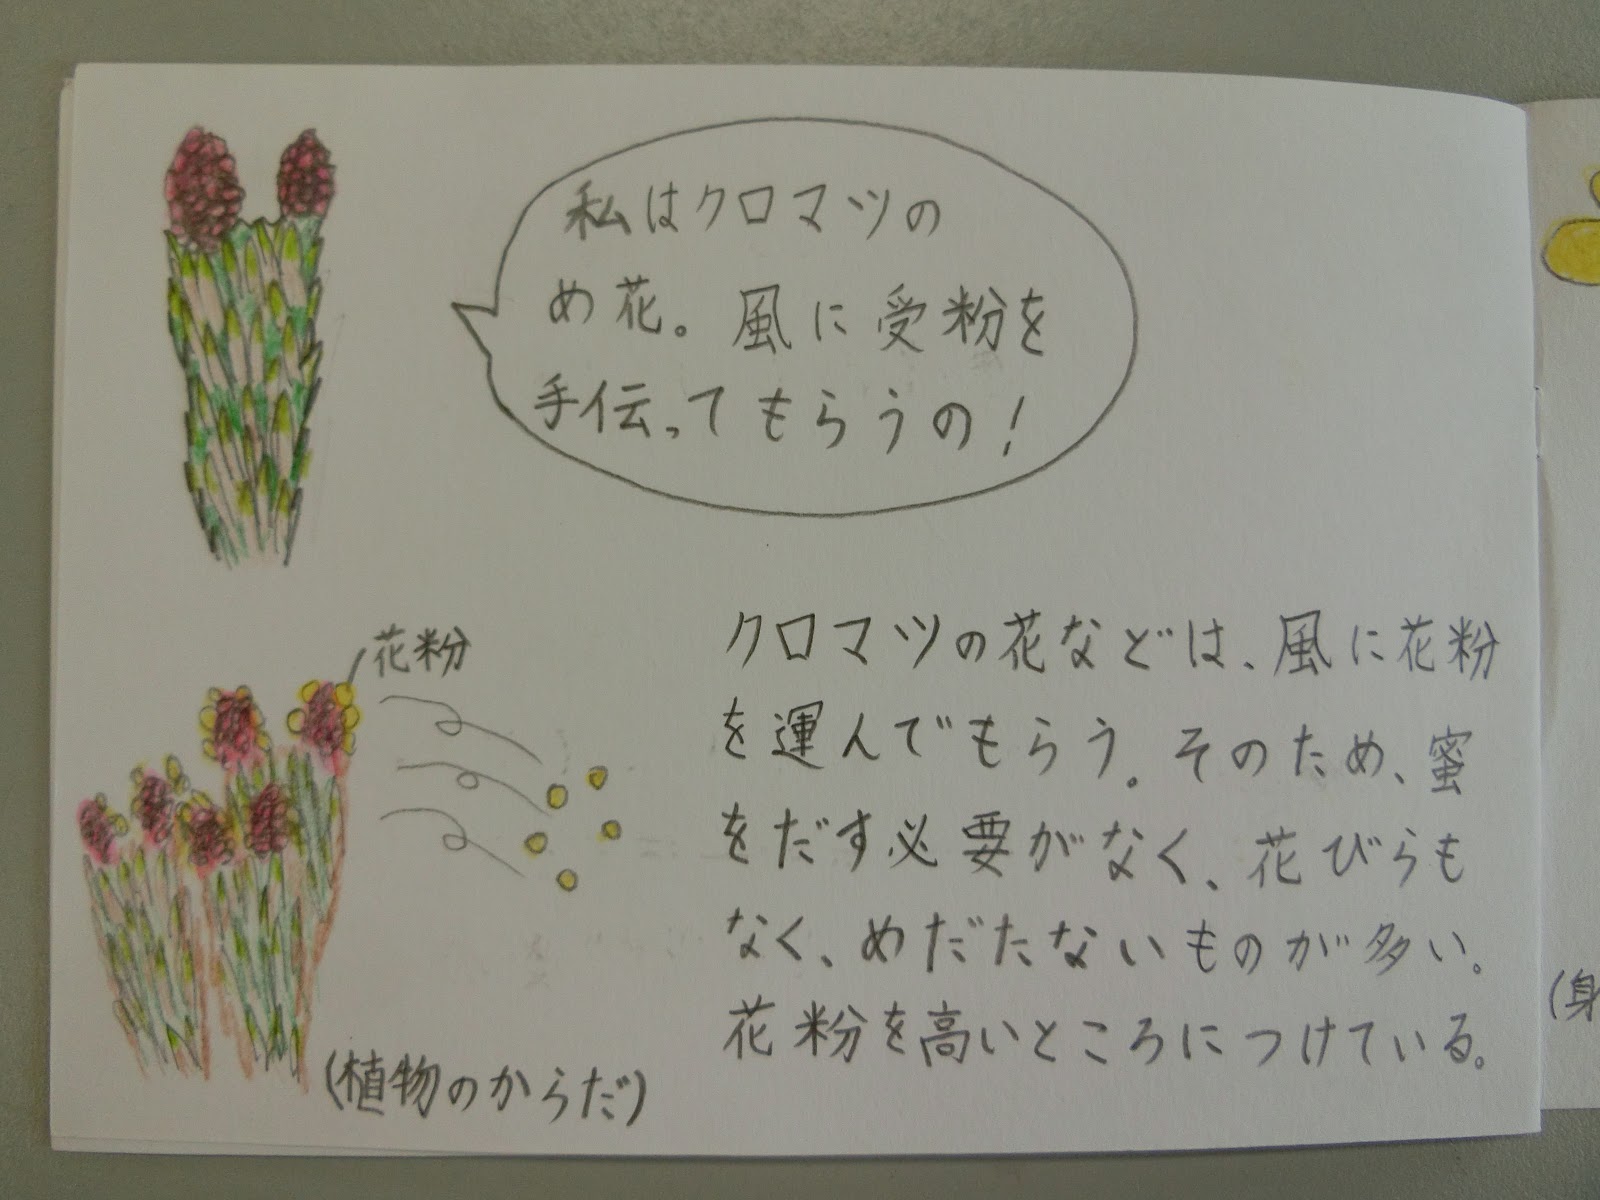 私はクロマツの
め花。風に受粉を
手伝ってもらうの!
花粉
クロマツの花などは、風に花粉
を運んでもらう。そのため、蜜
をだす必要がなく、花びらも
なく、めだたないものが多い。
花粉を高いところにつけている。
(植物のからだ)
(身